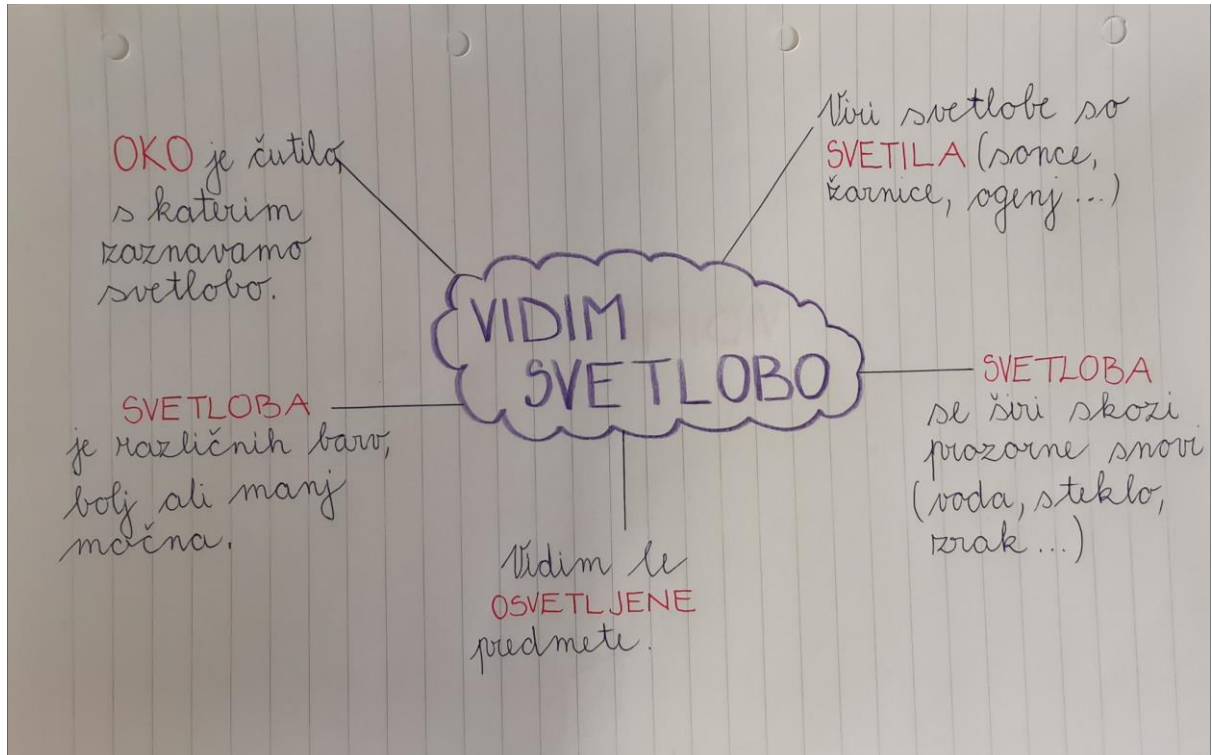 OKO je čutilo,
s katerim
zaznavamo
svetlobo.
Viri svetlobe so
SVETILA (sonce,
žarnice, ogenj ...)
VIDIM
SVETLOBO
SVETLOBA
je različnih barv,
bolj ali manj
močna.
SVETLOBA
se širi skozi
prozorne snovi
(voda, steklo,
zrak ...)
Vidim le
OSVETLJENE
predmete.